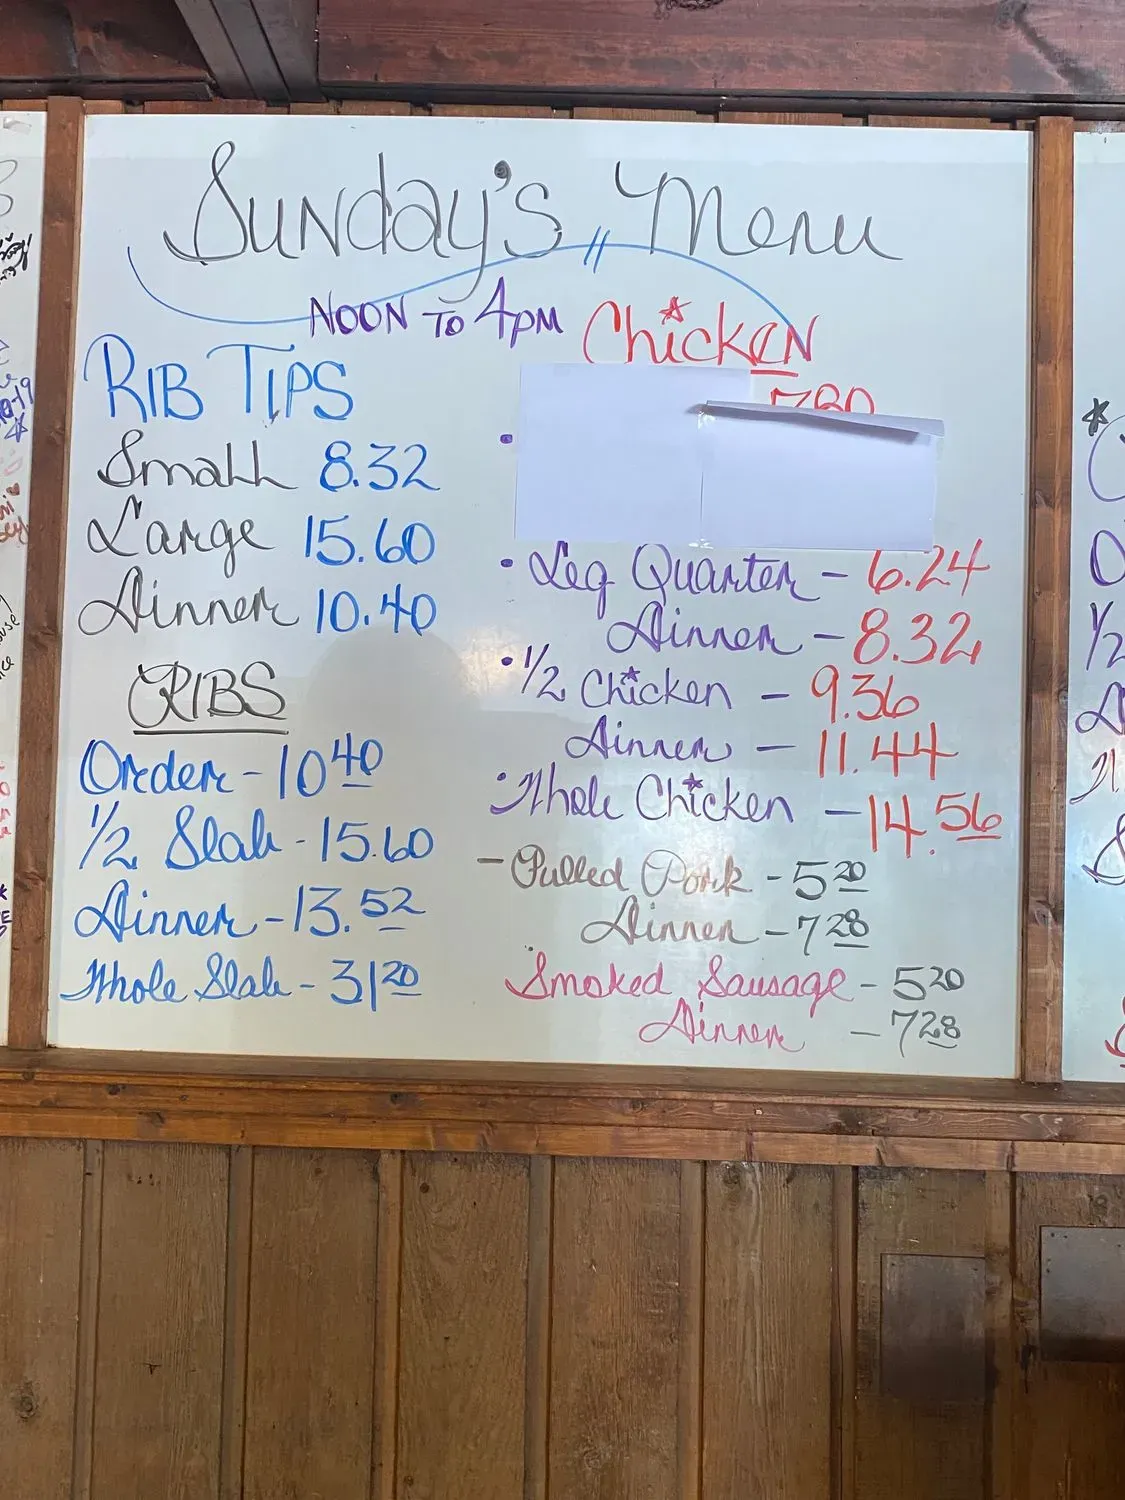 Sunday's Menu
NOON TO 4PM
RIB TIPS
Small 8.32
Large 15.60
Dinner 10.40
RIBS
Order - 10 40
1/2 Slab - 15.60
Dinner - 13.52
Whole Slab - 31 20
Chicken
780
• Leg Quarter - 6.24
Dinner - 8.32
• 1/2 Chicken - 9.36
Dinner - 11.44
• Whole Chicken - 14.56
- Pulled Pork - 5 20
Dinner - 7 28
Smoked Sausage - 5 20
Dinner - 7 28